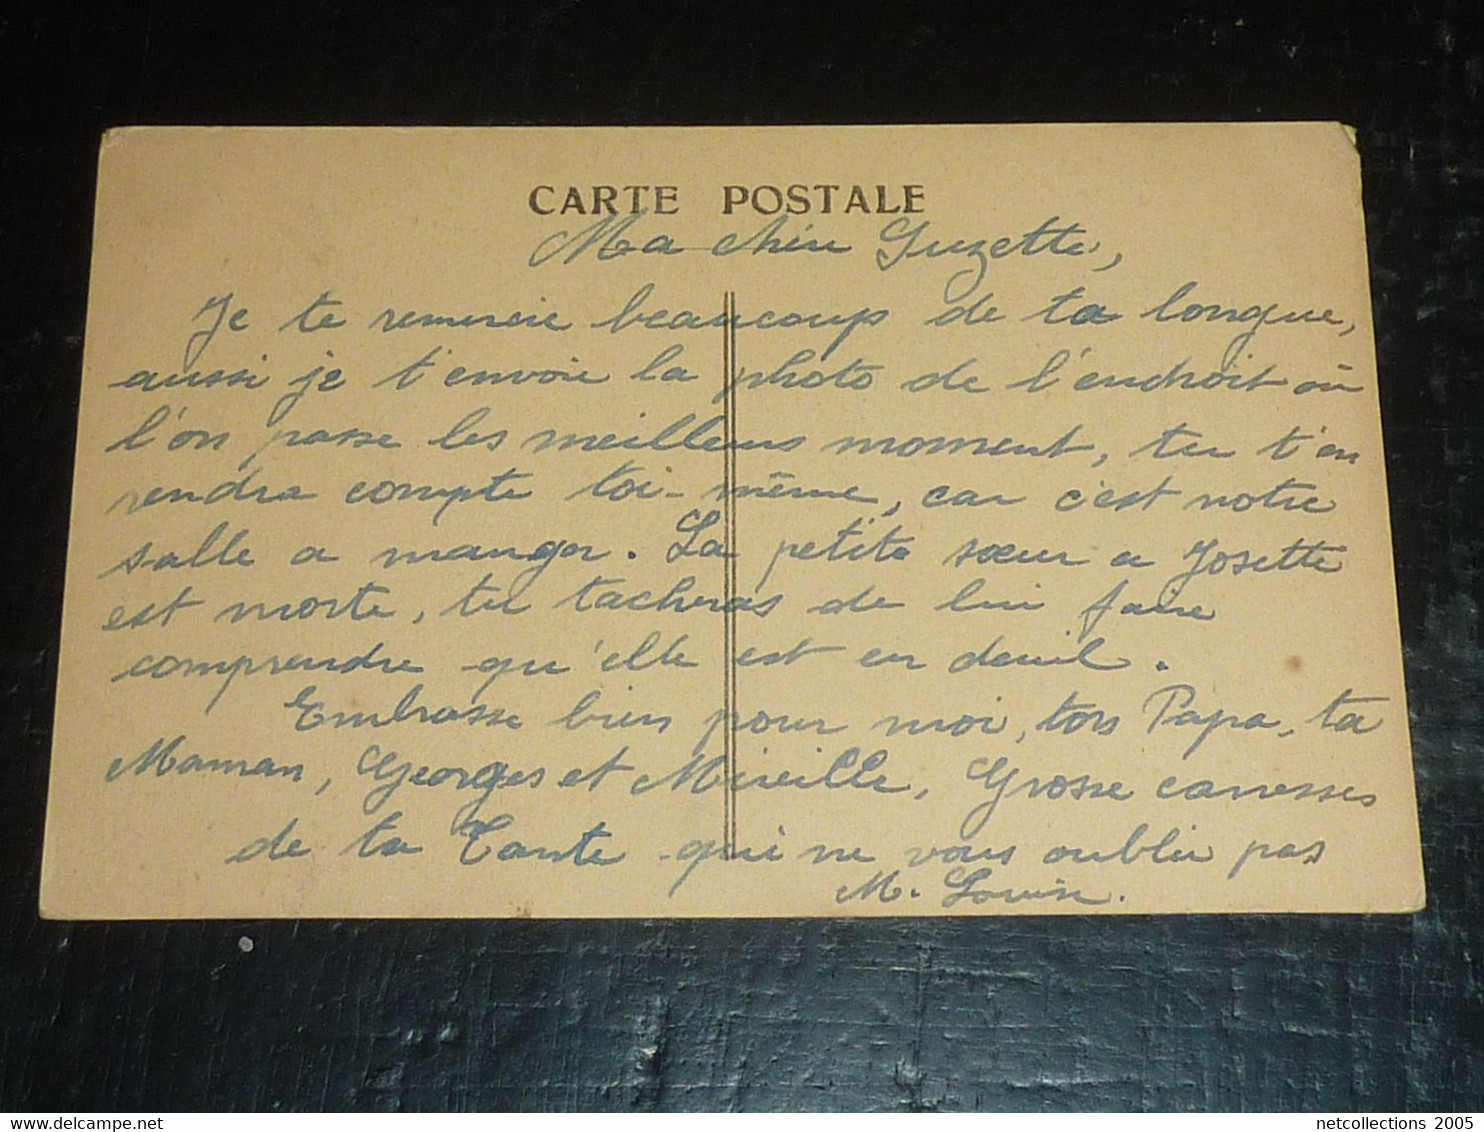 CARTE POSTALE
Ma chère Suzette,
Je te remercie beaucoup de ta longue,
aussi je t'envoie la photo de l'endroit où
l'on passe les meilleurs moment, tu t'en
rendra compte toi-même, car c'est notre
salle a manger. La petite sœur a Josette
est morte, tu tacheras de lui faire
comprendre qu'elle est en deuil.
Embrasse bien pour moi, ton Papa, ta
Maman, Georges et Mireille, Grosse caresses
de ta Tante qui ne vous oublie pas
M. Louise.
netcollections 2005